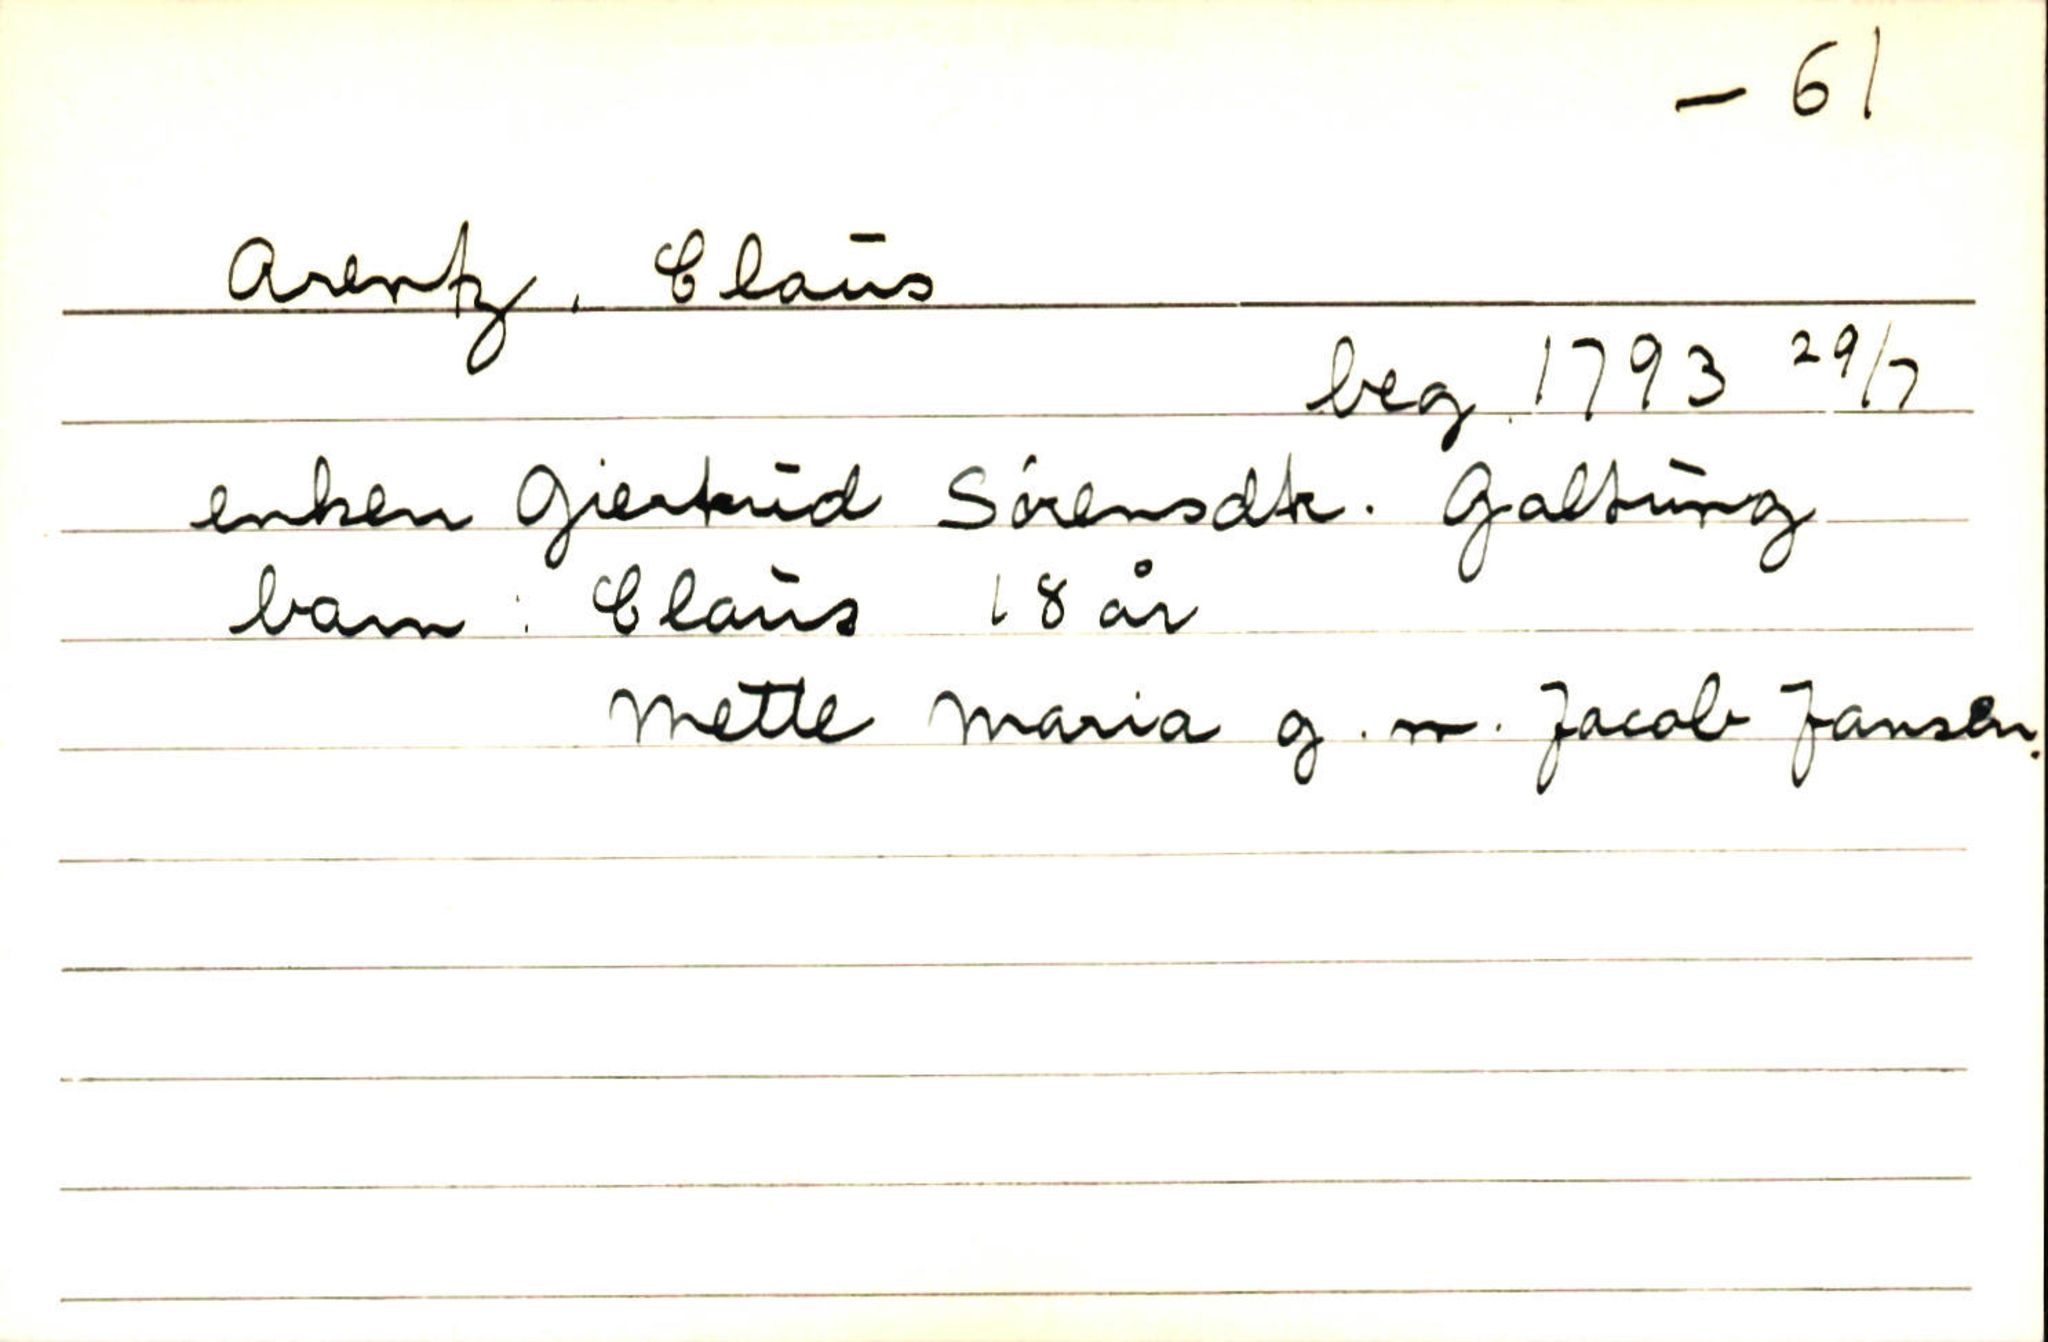 - 61
Arentz, Claus
beg. 1793 29/7
enken Giertrud Sørensdtr. Galtung
barn: Claus 18 år
Mette Maria g. m. Jacob Jansen.